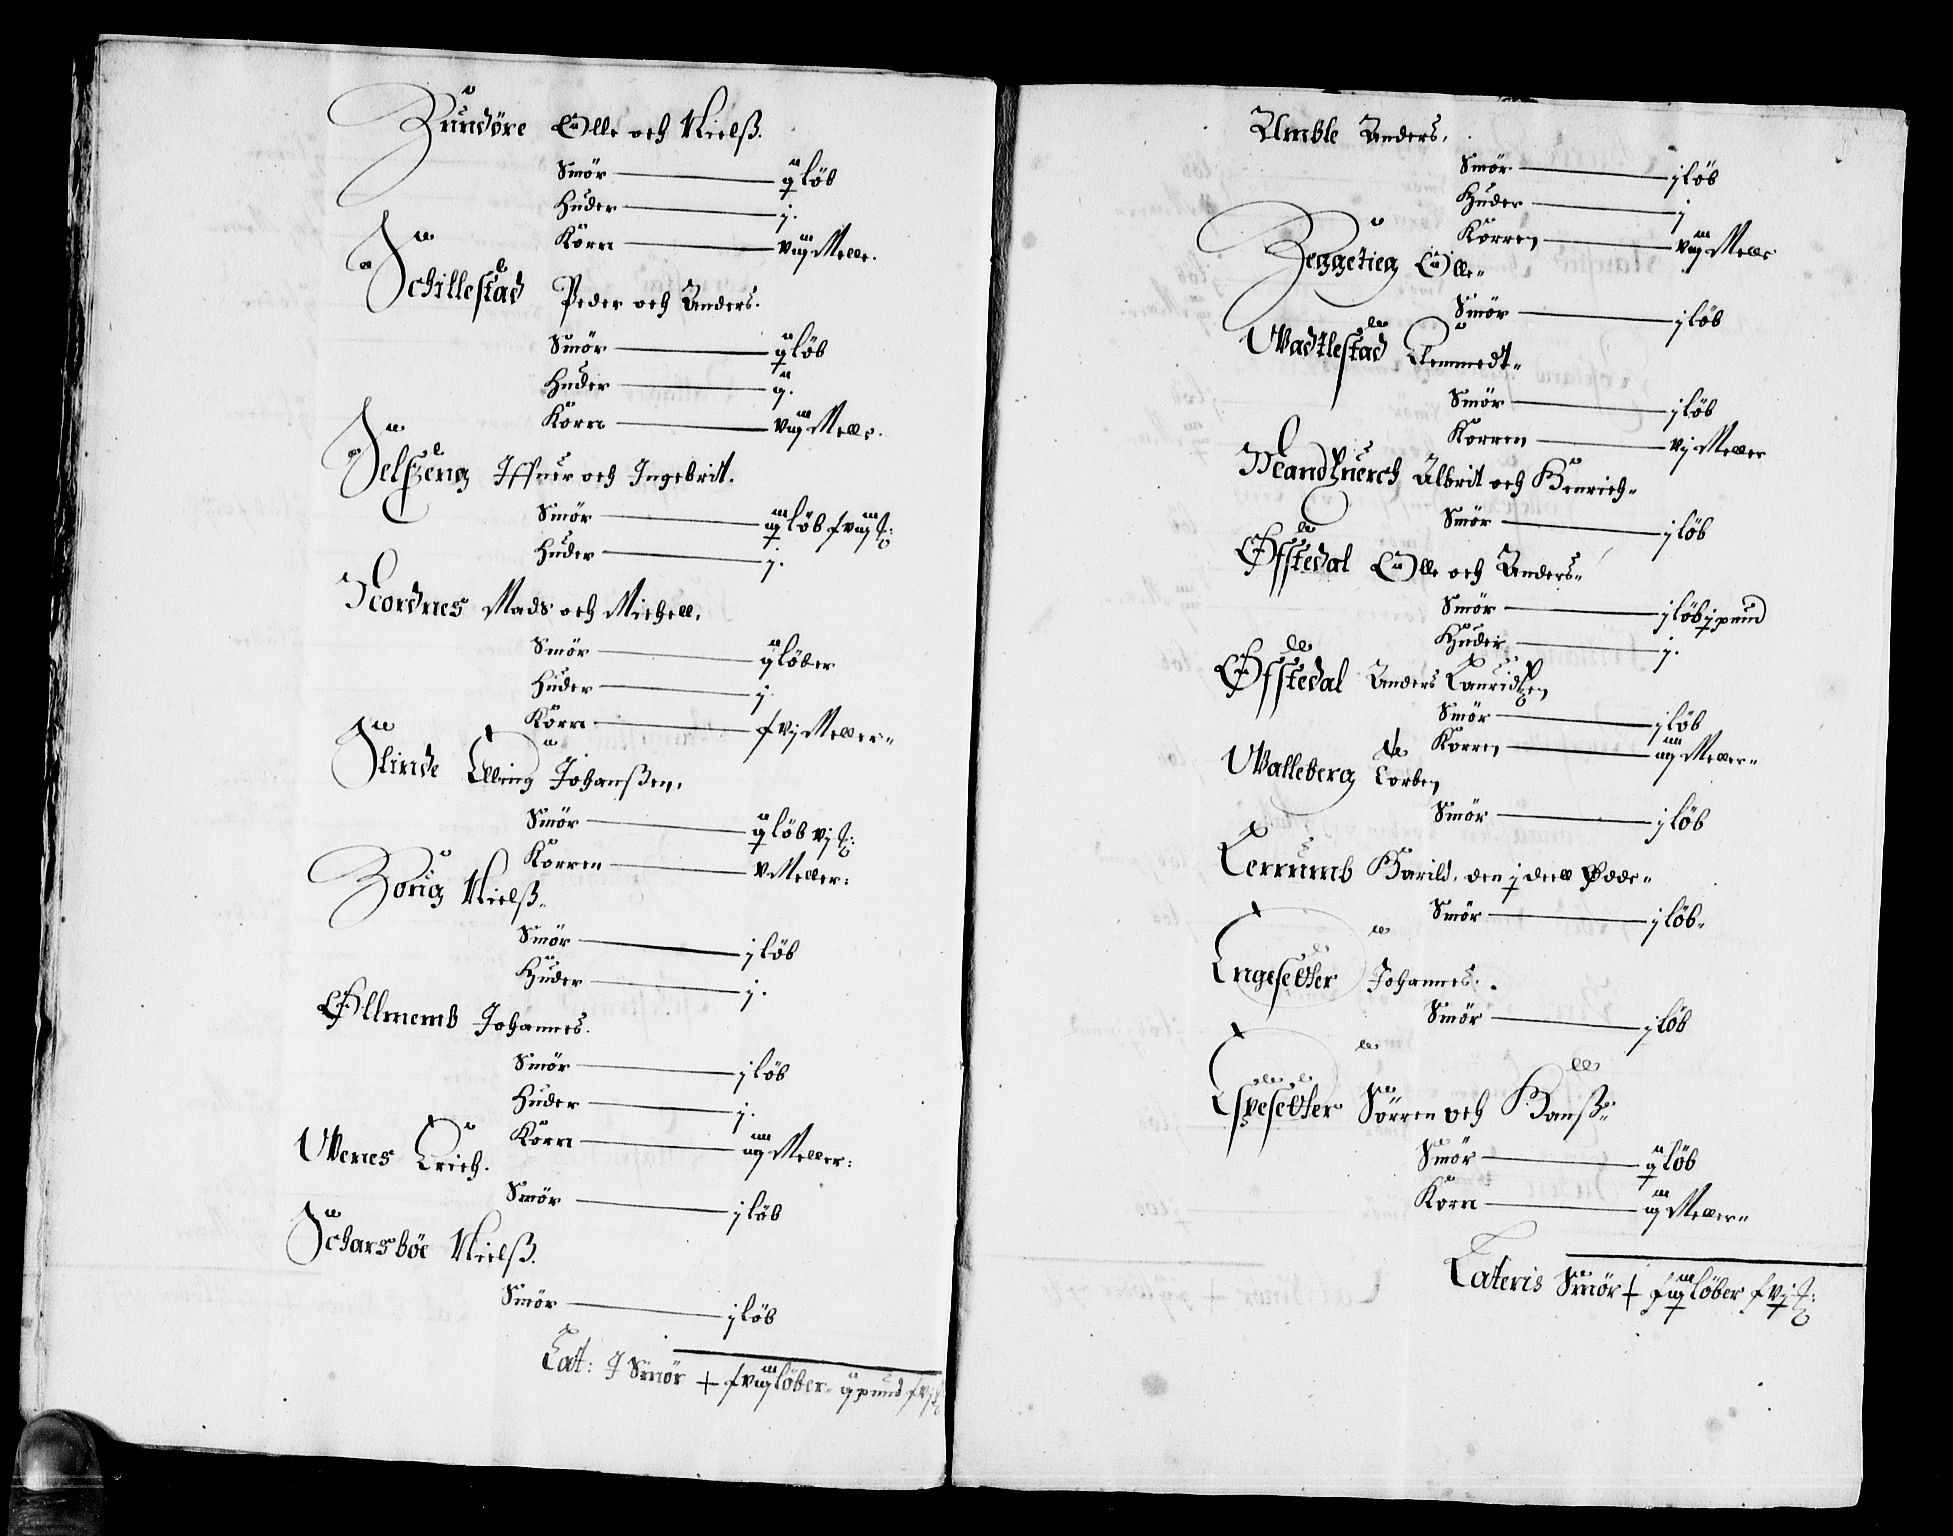 Zundøre Olle och Nielß.
Smör — ij löb
Huder — j.
Korn — viij Melle.
Schillestad Peder och Anders.
Smör — ij löb
Huder — ij.
Korn — viij Melle.
Selseng Iffuer och Ingebrit.
Smör — iij löb
Huder — j.
Nordnes Mads och Michell.
Smör — ij löber
Huder — j.
Korn — xvj Meller
Slinde Elling Johanßen.
Smör — ij löb vj
Korren — v Meller:
Nielß.
Smör — j löb
Huder — j.
Ollmemb Johannes.
Smör — j löb
Huder — j.
Korn — iiij Meller:
Wenes Erich.
Smör — j löb
Scharsböe Nielß.
Smör — j löb
Lat: J Smör + xviij löber. ij pund xvj
Amble Anders.
Smör — j löb
Huder — j
Korren — viij Melle
Olle
Smör — j löb
Wadtlestad Clemmedt
Smör — j löb
Korren — vj Meller
Albrit och Henrich
Smör — j löb
Offstedal Olle och Anders
Smör — j löb j pund
Huder — j.
Offstedal Anders Lauridtzen
Smör — j löb
Korren — iiij Meller
Walleberg Torben
Smör — j löb
Lerrumb Harild, den j deell Øde
Smör — j löb
Engesetter Johannes.
Smör — j löb
Espesetter Sörren och Hanß
Smör — ij löb
Korn — iij Meller
Lateris Smör + xiij löber xvj